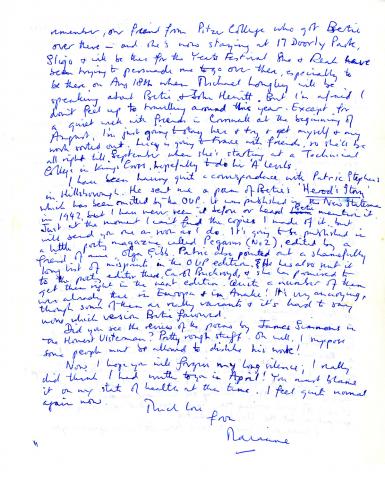 remember, our friend from Pitzer College who got Bertie
over there – and she's now staying at 17 Doorly Park,
Sligo & will be there for the Yeats Festival. She & Reah have
been trying to persuade me to go over there, especially to
be there on Aug 18th when Michael Longley will be
speaking about Bertie & John Hewitt. But I'm afraid I
don't feel up to travelling around this year. Except for
a quiet week with friends in Cornwall at the beginning of
August, I'm just going to stay here & try & get myself & my
work sorted out. is going to France with friends, so she'll be
all right till September when she's starting at a Technical
College in King's Cross, hopefully to do her 'A' levels.
I have been having quite a correspondence with Patric Stephens
in Hillsborough. He sent me a poem of Bertie's 'Herod's Story'
which has been omitted by the OUP. It was published in the New Statesman
in 1942, but I have never seen it before or heard Bertie mention it.
Just at the moment I can't find the copies I made of it, but
will send you one as soon as I do. It's going to be published in
a little poetry magazine called Pegasus (No 2), edited by a
friend of mine. Olga Patric also pointed out a shamefully
long list of misprints in the OUP edition. He has also sent it
to the poetry editor there, Carol Buckroyd, & she has promised to
get them right in the next edition. Quite a number of them
were already there in Europa & in Awake! It's very annoying,
though some of them are really variants & it's hard to say
which version Bertie favoured.
Did you see the review of the poems by James Simmons in
"The Honest Ulsterman"? Pretty rough stuff. Oh well, I suppose
some people must be allowed to dislike his work!
Now, I hope you will forgive my long silence; I really
did think I had written to you in April! You must blame
it on my state of health at the time. I feel quite normal
again now.
Much love
from
Marianne